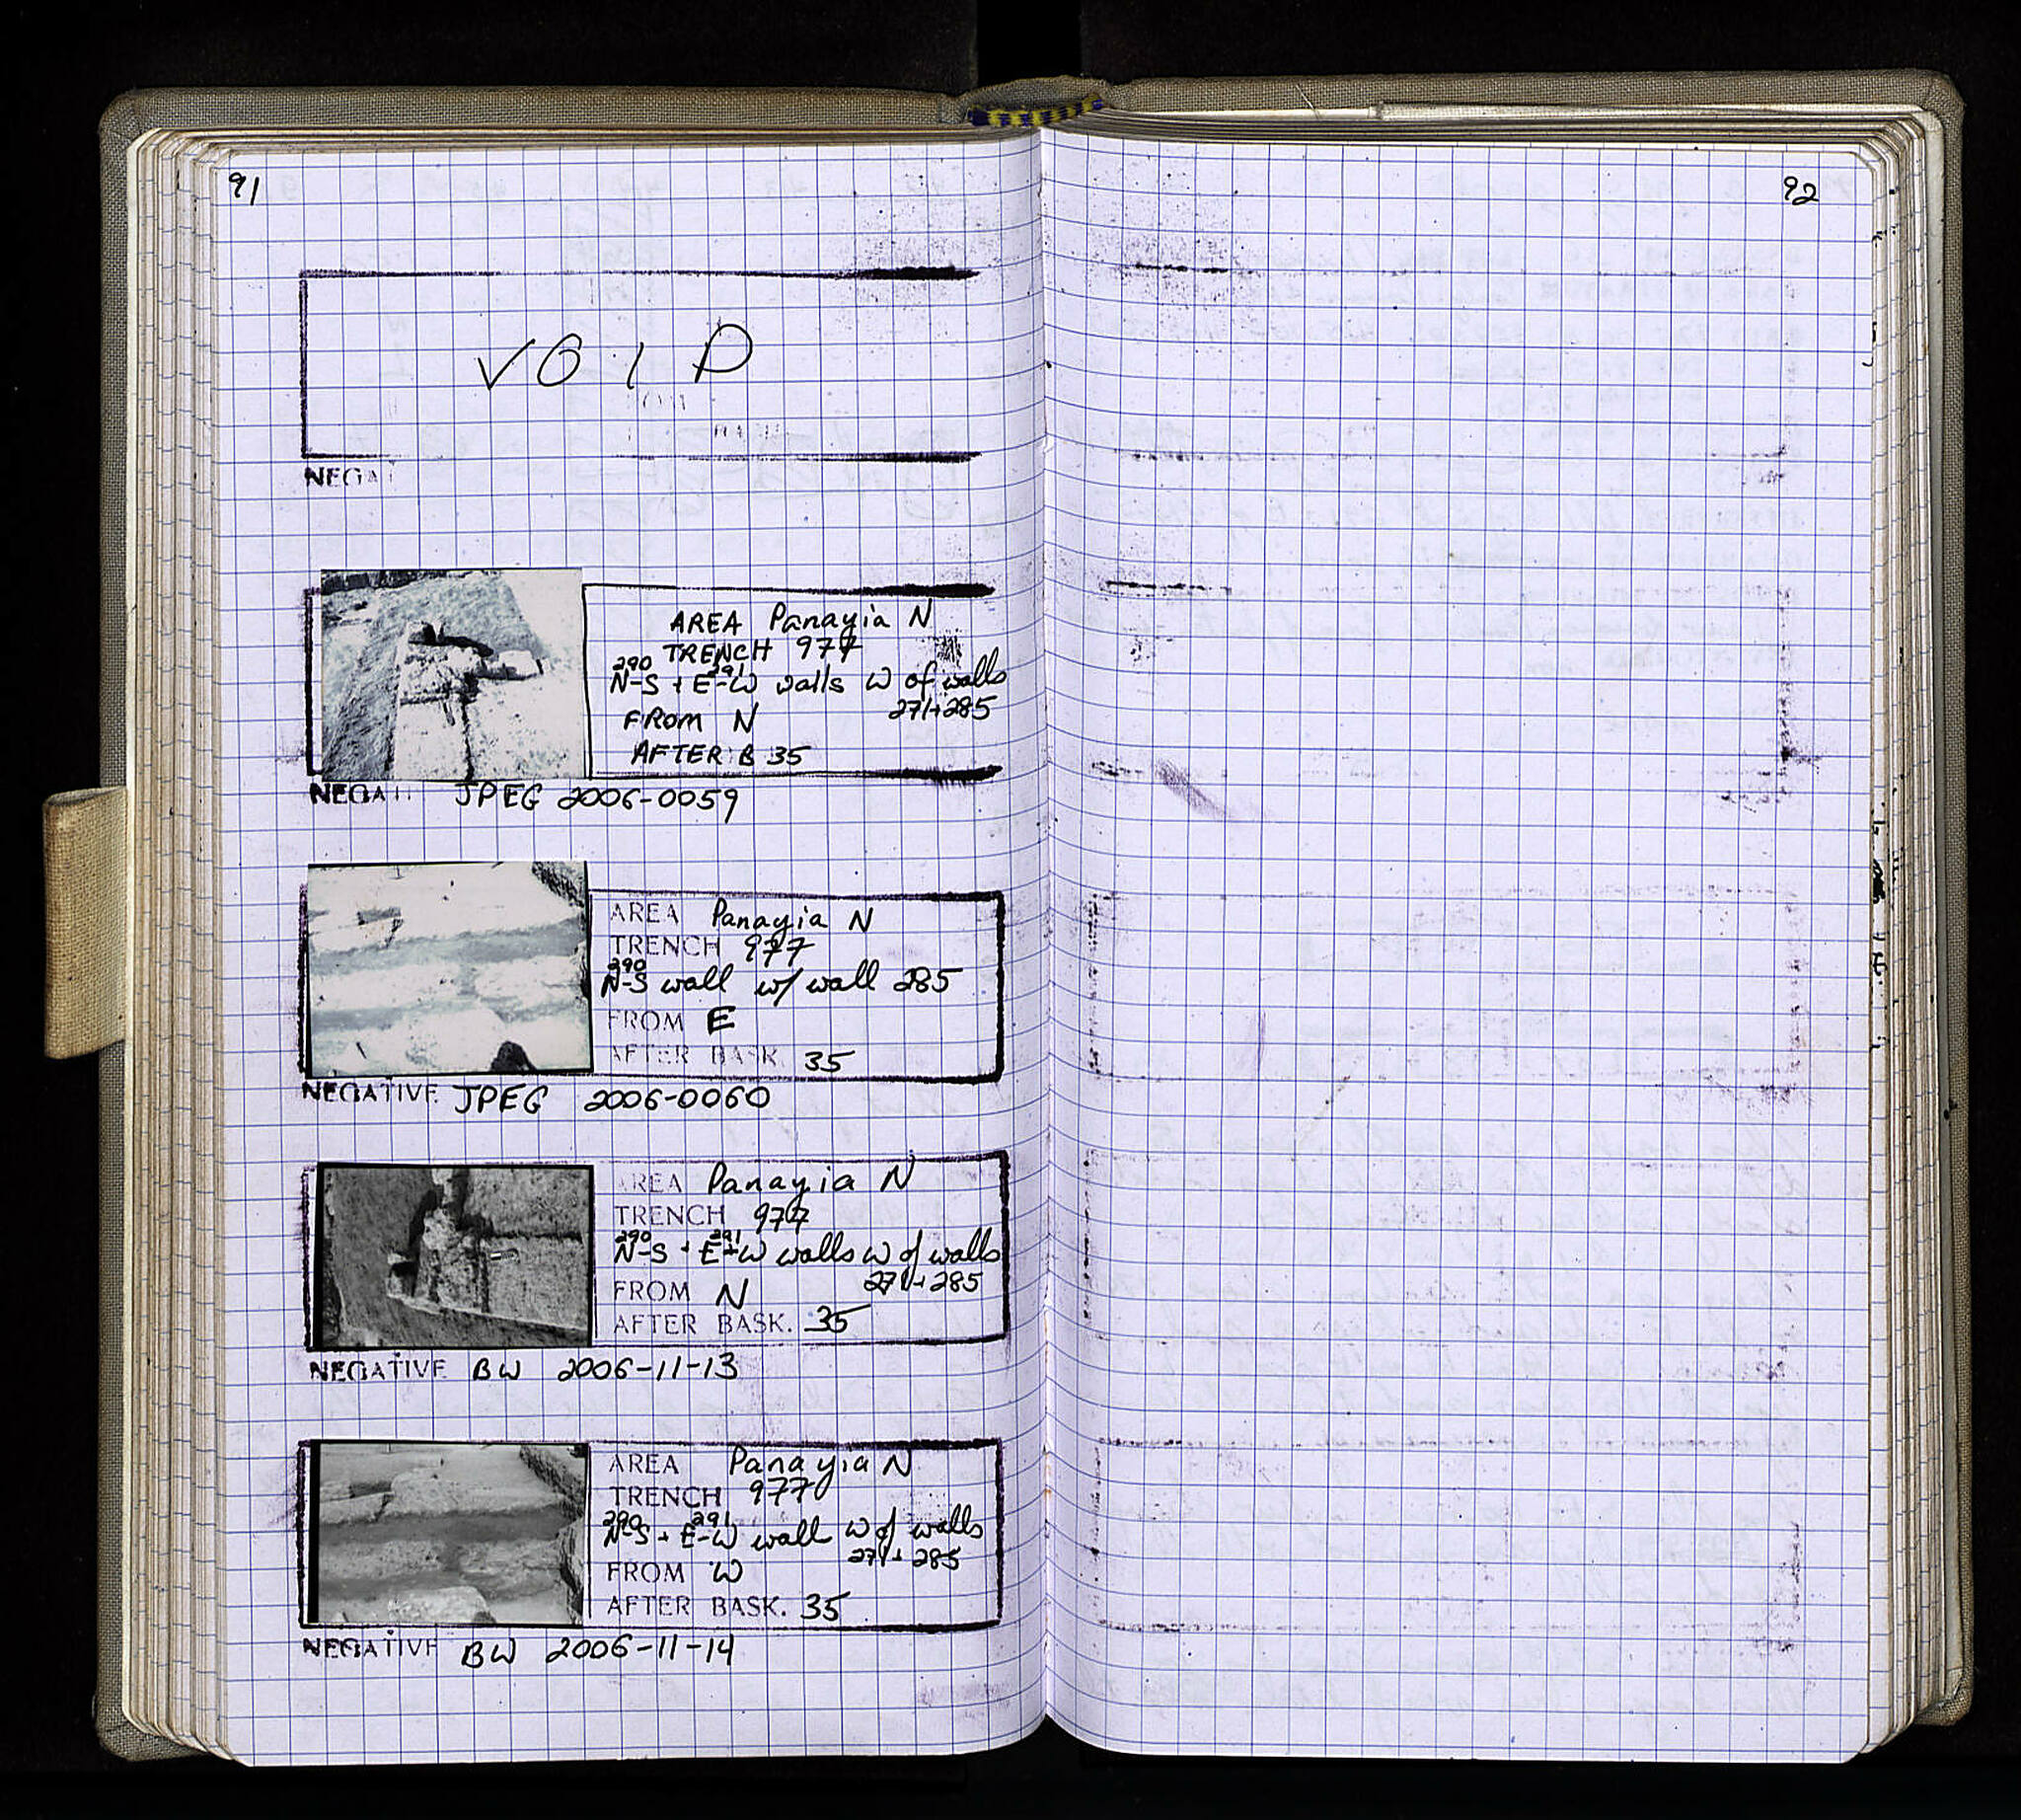 91
92
VOID
NEGAT
AREA Panayia N
TRENCH 977
290 291
N-S + E-W walls W of walls
271+285
FROM N
AFTER B 35
NEGATI JPEG 2006-0059
AREA Panayia N
TRENCH 977
290
N-S wall w/ wall 285
FROM E
AFTER BASK. 35
NEGATIVE JPEG 2006-0060
AREA Panayia N
TRENCH 977
290 291
N-S + E-W walls W of walls
271+285
FROM N
AFTER BASK. 35
NEGATIVE BW 2006-11-13
AREA Panayia N
TRENCH 977
290 291
N-S + E-W wall W of walls
271+285
FROM W
AFTER BASK. 35
NEGATIVE BW 2006-11-14